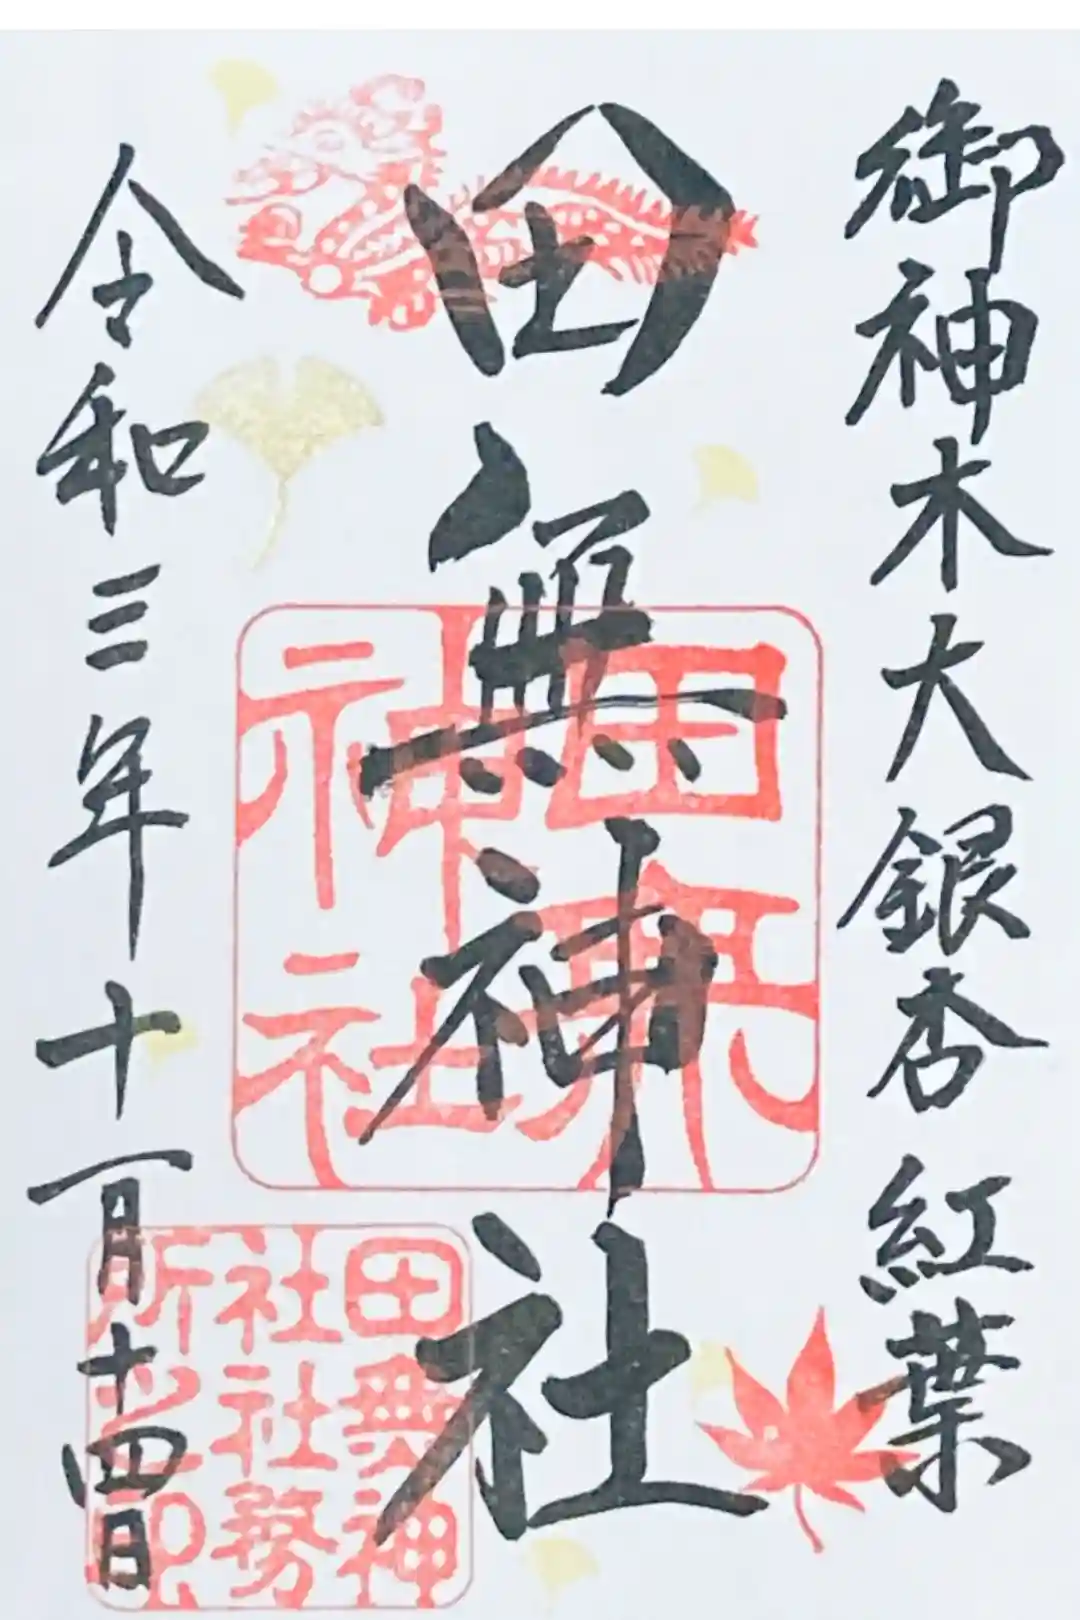 御神木大銀杏 紅葉
田無神社
令和三年十一月十四日
田無
神社
田無神
社社務
所之印